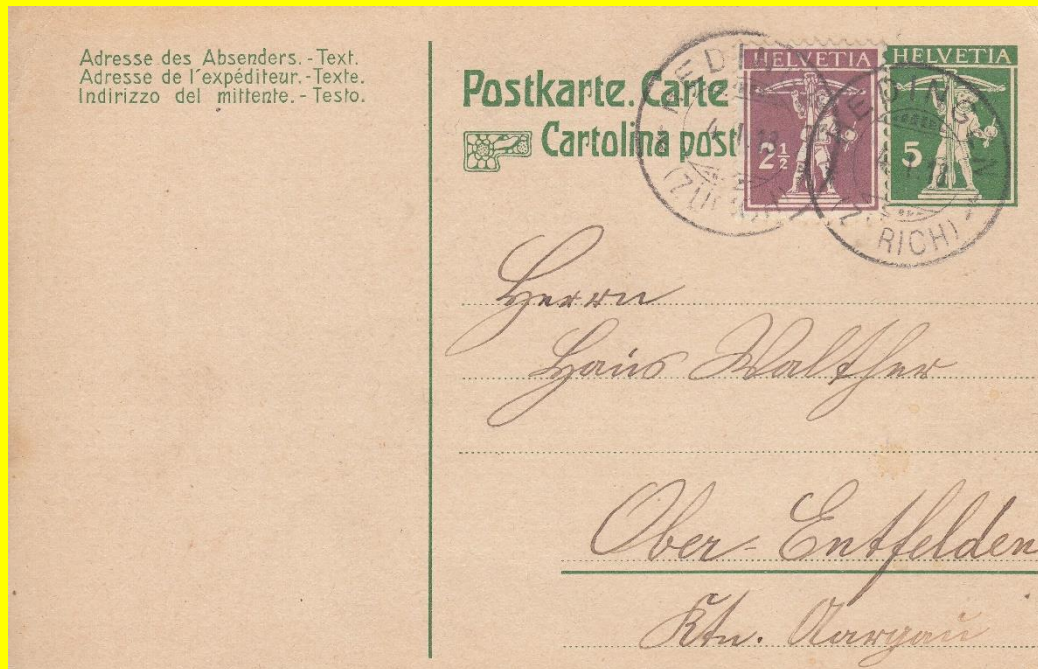 Adresse des Absenders.-Text.
Adresse de l'expéditeur.-Texte.
Indirizzo del mittente.-Testo.
Postkarte. Carte
Cartolina post
HELVETIA
2½
HELVETIA
5
HEDINGEN
(ZÜRICH)
Herrn
Hans Walther
Ober-Entfelden
Ktn. Aargau